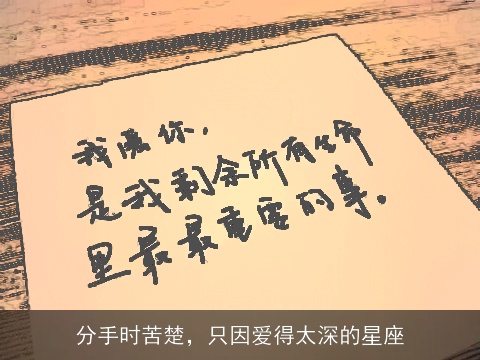 我愿你,
是我剩余所有生命
里最最重要的事。
分手时苦楚，只因爱得太深的星座